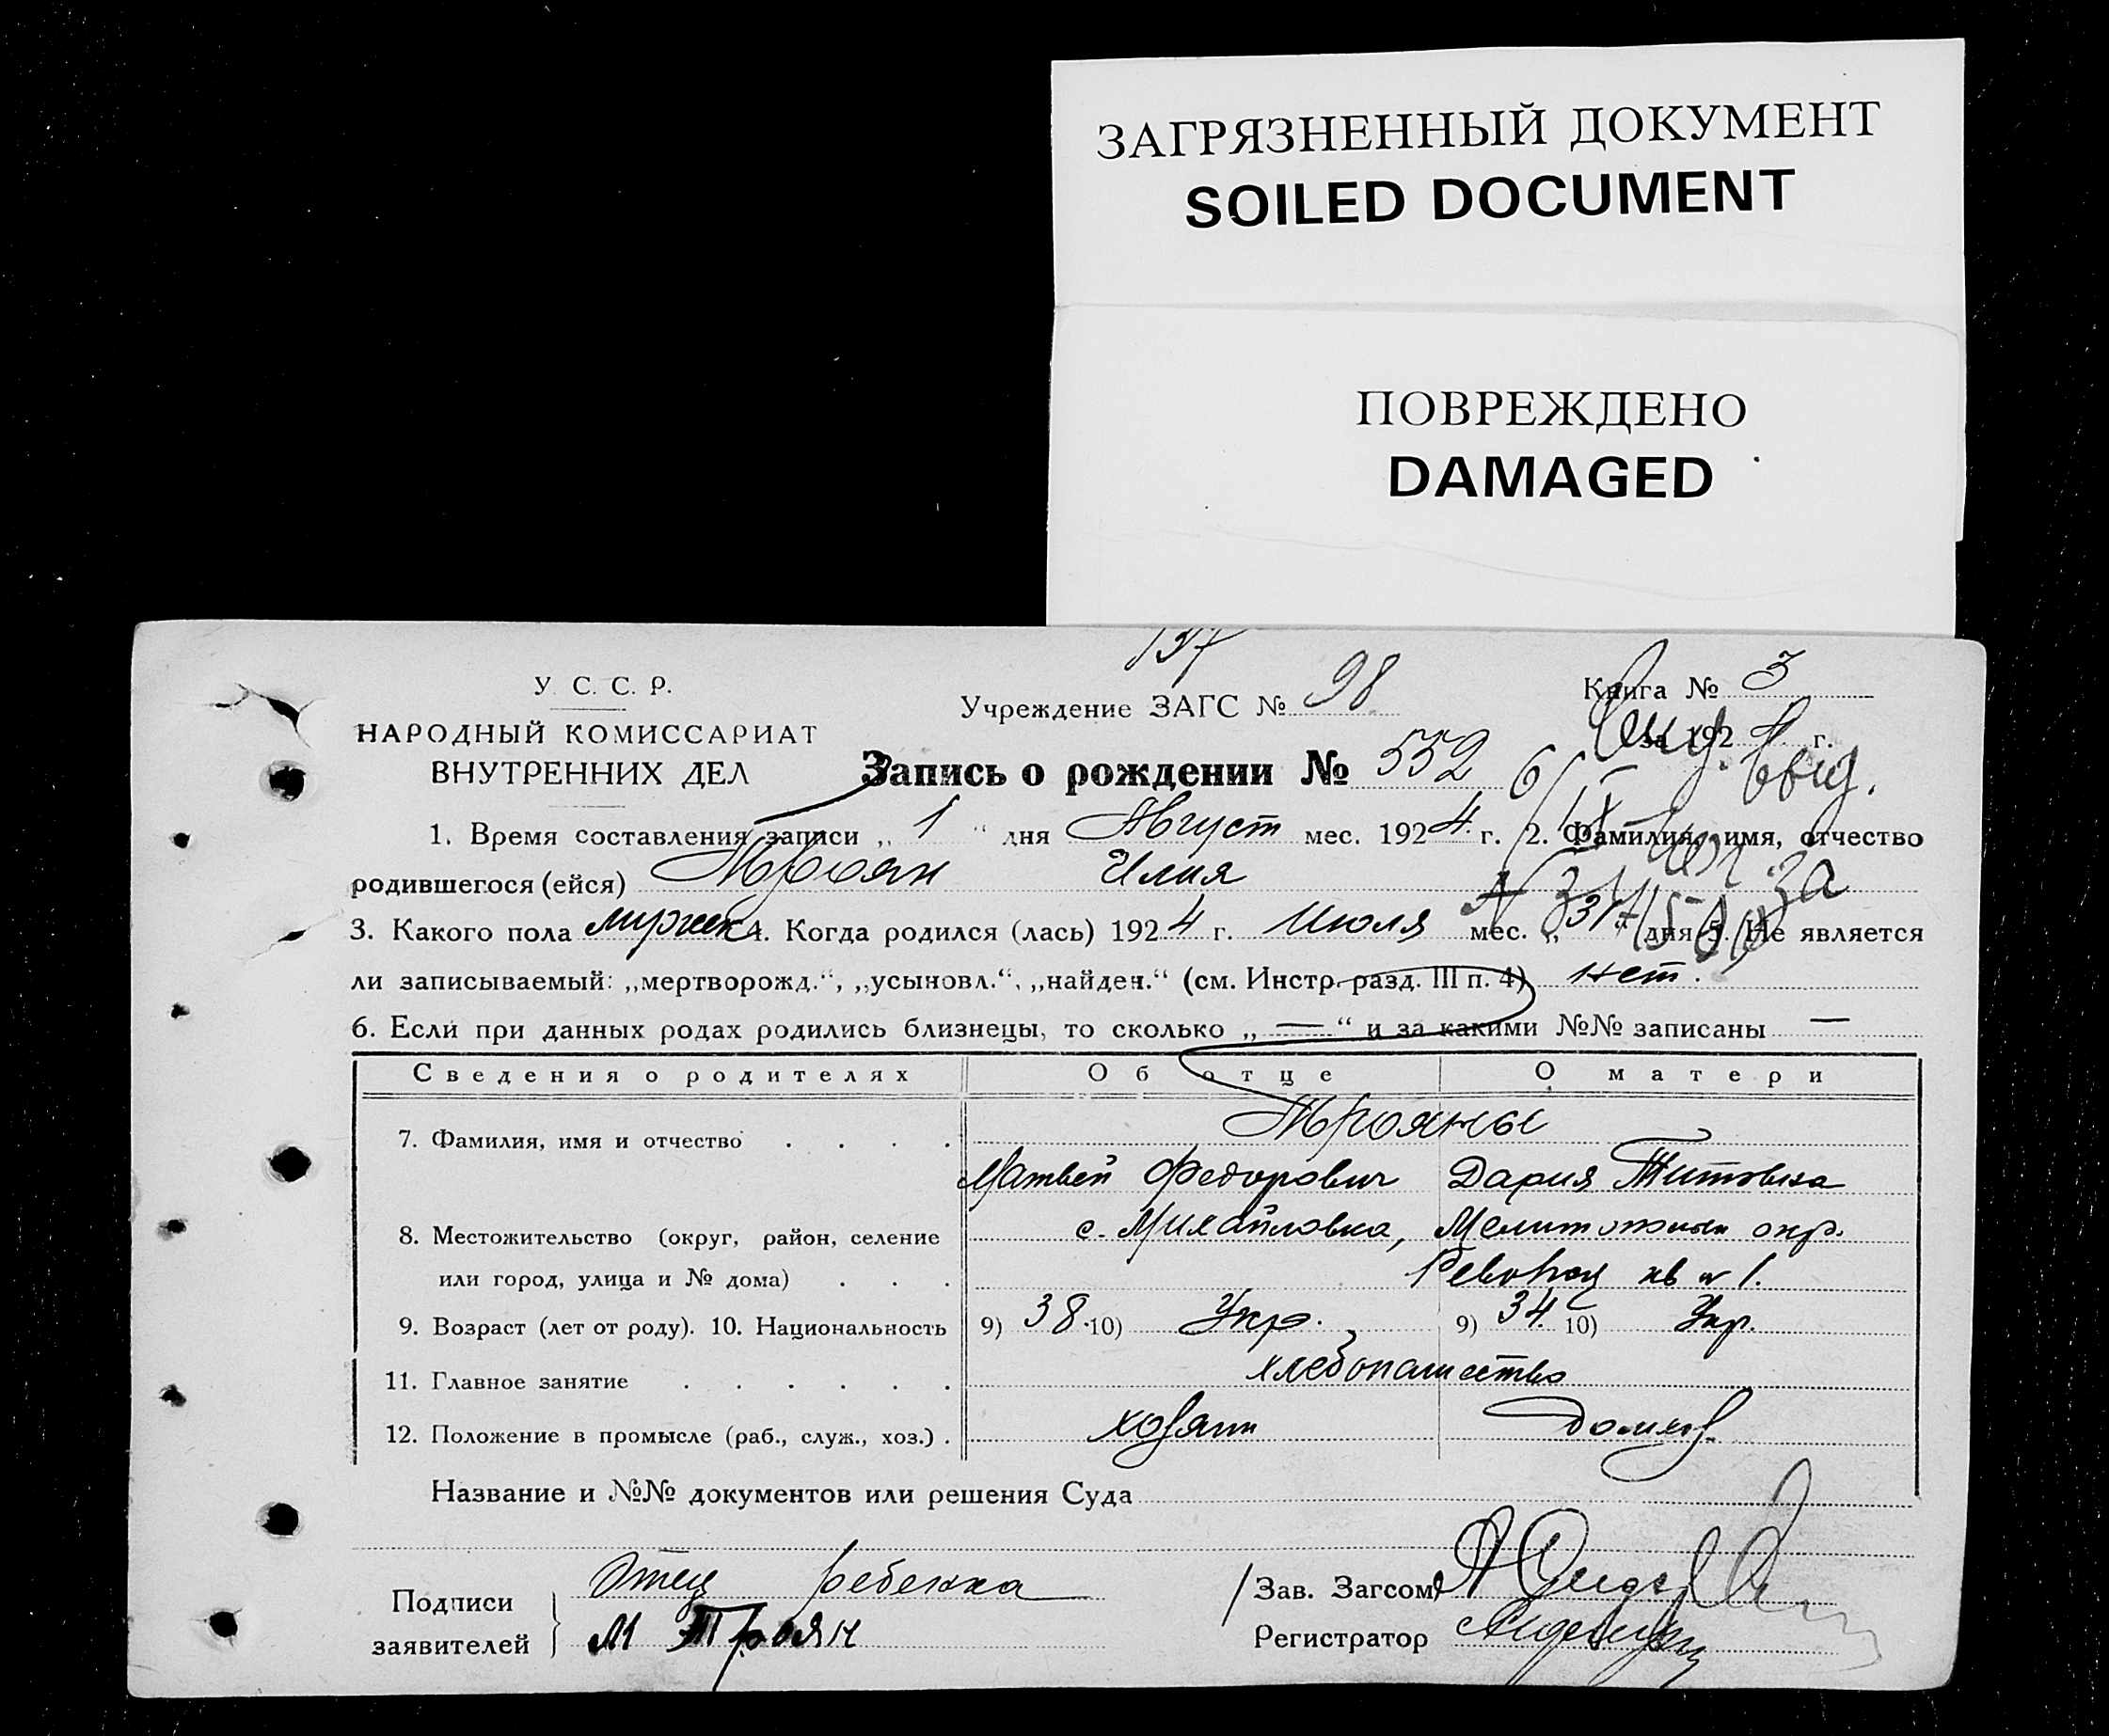 ЗАГРЯЗНЕННЫЙ ДОКУМЕНТ
SOILED DOCUMENT
ПОВРЕЖДЕНО
DAMAGED
137
У. С. С. Р.
НАРОДНЫЙ КОМИССАРИАТ
ВНУТРЕННИХ ДЕЛ
Учреждение ЗАГС № 98
Книга № 3
за 192 г.
выд.
Запись о рождении № 552
6/IX
1. Время составления записи „ 1 “ дня Август мес. 1924 г. 2. Фамилия, имя, отчество
родившегося (ейся) Троян Илия
за
3. Какого пола мужск 4. Когда родился (лась) 1924 г. Июля мес. „31“ дня 5. Не является
ли записываемый: „мертворожд.“, „усыновл.“, „найден.“ (см. Инстр. разд. III п. 4) нет.
6. Если при данных родах родились близнецы, то сколько „ — “ и за какими №№ записаны —
Сведения о родителях Об отце О матери
7. Фамилия, имя и отчество . . . . Трояны
Матвей Федорович Дария Титовна
8. Местожительство (округ, район, селение с. Михайловка, Мелитопольск окр.
или город, улица и № дома) . . . кв № 1.
9. Возраст (лет от роду). 10. Национальность 9) 38. 10) Укр. 9) 34. 10) Укр.
11. Главное занятие . . . . . . хлебопашество
12. Положение в промысле (раб., служ., хоз.) . хозяин домхоз.
Название и №№ документов или решения Суда
Подписи
заявителей
Отец ребенка
М Троян
Зав. Загсом
Регистратор